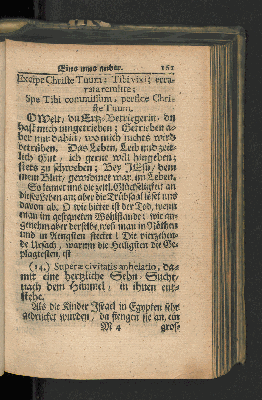 Eins ums ander. 161
Excipe Christe Tuum: Tibi vixi; erra-
ta remitte;
Spe Tibi commissum, perfice Chri-
ste Tuum.
O Welt, du Ertz-Betriegerin, du
hast mich umgetrieben; Getrieben a-
ber nur dahin, wo mich nichts wird
betrüben. Das Leben, Leib und zeit-
lich Gut, ich gerne will hingeben;
stets zu schweben; Bey JEsu, dem
mein Blut, gewidmet war, im Leben.
So leimet uns die zeitl. Glückseligkeit an
dieses Leben an; aber die Trübsaal löset uns
davon ab. O wie bitter ist der Tod, wenn
man im gesegneten Wohlstande; wie an-
genehm aber derselbe, wañ man in Nöthen
und in Aengsten steckt! Die vierzehen-
de Ursach, warum die Heiligsten die Ge-
plagtesten, ist
(14.) Superæ civitatis anhelatio, da-
mit eine hertzliche Sehn-Sucht,
nach dem Himmel, in ihnen ent-
stehe.
Als die Kinder Israel in Egypten sehr
gedrücket wurden, da fiengen sie an, ein
M 4 gros-